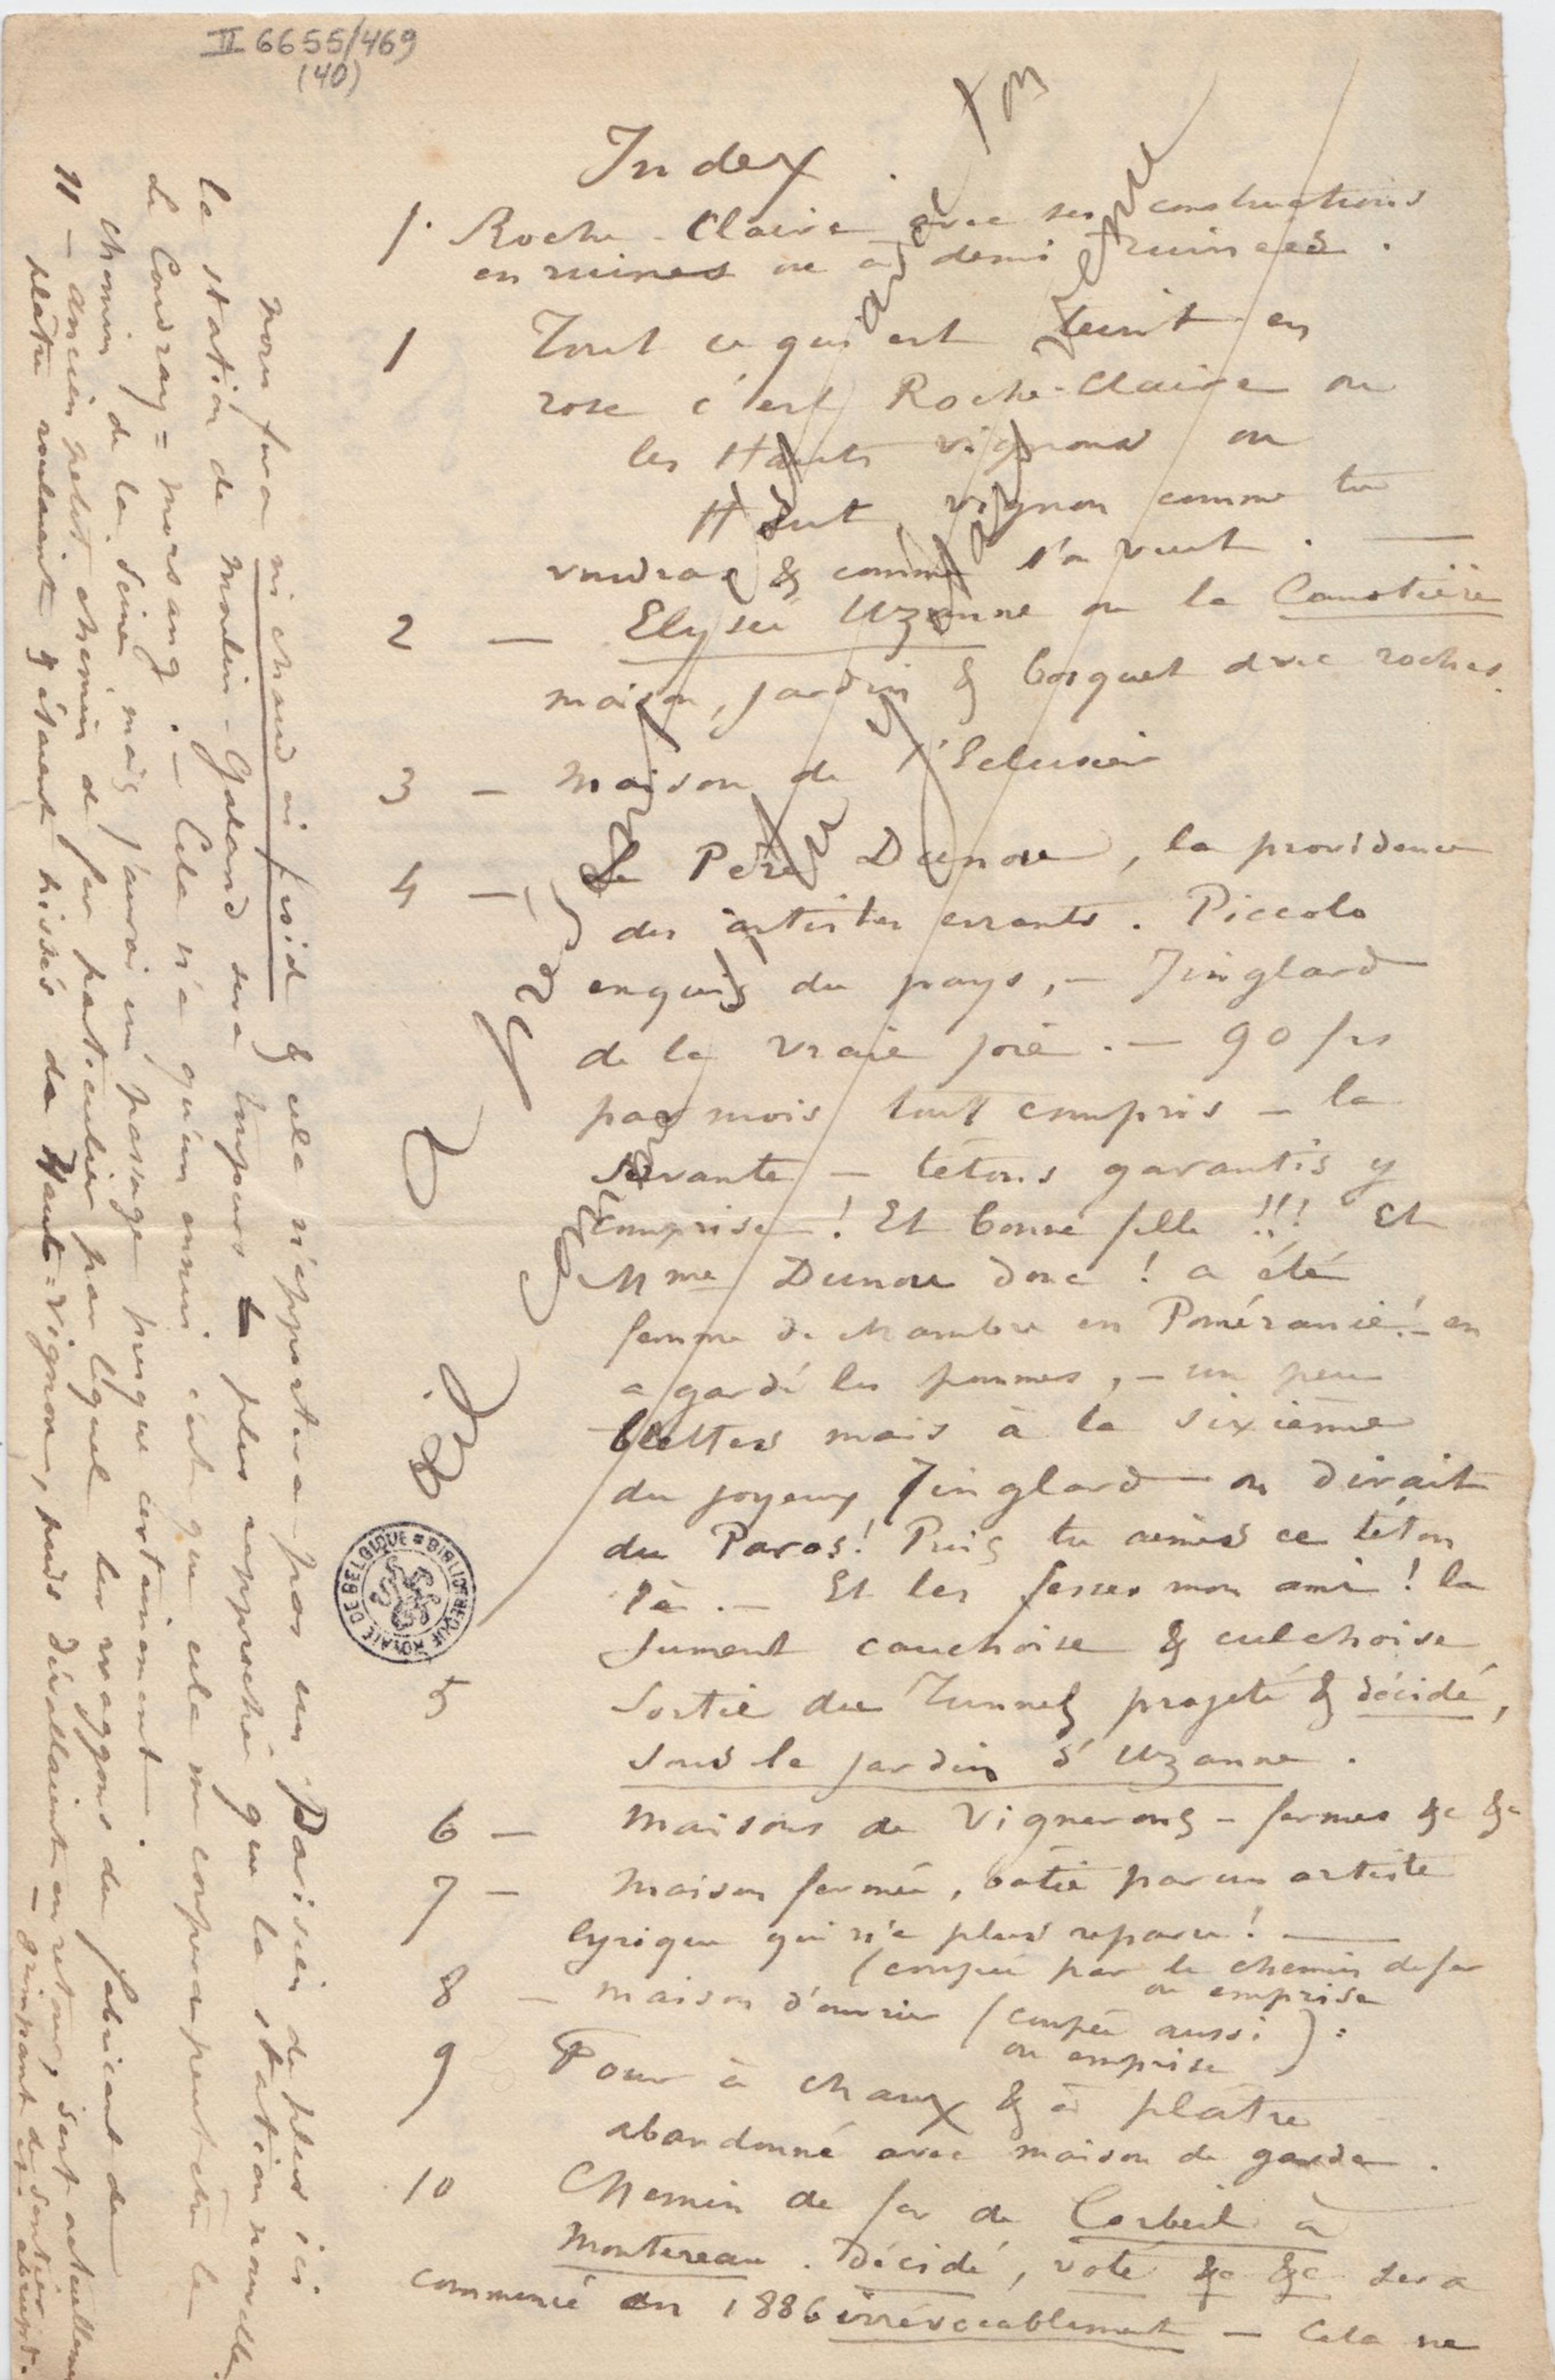 II 6655/469
(40)
Index.
1. Roche-Claire avec ses constructions
en ruines ou à demi ruinées.
1 Tout ce qui est teinté en
rose c'est Roche-Claire ou
les Hauts vignons ou
Haut vignon comme tu
voudras & comme ça veut. —
2 — Elysée Uzanne ou la Canotière
maison, jardin & bosquet avec roches.
3 — Maison de l'Eclusier
4 — Le Père Dunou, la providence
des artistes errants. Piccolo
exquis du pays, — Jinglard
de la vraie joie. — 90 frs
par mois tout compris — la
servante — tétons garantis y
comprise! Et bonne fille !!! Et
Mme Dunou donc! a été
femme de chambre en Poméranie! — en
a gardé les pommes, — un peu
blettes mais à la sixième
du joyeux Jinglard on dirait
du Paros! Puis tu aimes ce téton
là. — Et les fesses mon ami! la
jument cauchoise & culchoise
5 Sortie du Tunnel projeté & décidé,
sous le jardin d'Uzanne.
6 — Maisons de Vignerons — fermes &c &c
7 — Maison fermée, bâtie par un artiste
lyrique qui n'a plus reparu! —
(coupée par le chemin de fer
ou emprise
8 — Maison d'ouvrier (coupée aussi):
ou emprise
9 Four à chaux & à plâtre
abandonné avec maison de garde.
10 Chemin de fer de Corbeil à
Montereau. Décidé, voté &c &c sera
commencé en 1886 irrévocablement — Cela ne
nous fera ni chaud ni froid & cela n'apportera pas un Parisien de plus ici
la station de Moulin-Galand sera toujours plus rapprochée que la station nouvelle,
Le Coudray=Morsang. — Cela n'a qu'un ennui c'est que cela me coupera peut être le
chemin de la Seine, mais j'aurai un passage presque certainement.
11 — ancien petit chemin de fer particulier par lequel les waggons du fabricant de
plâtre roulaient & étaient hissés de Haut=vignon, puis dévallaient en retour, sert actuellement
— grimpant de sentier abrupt.
BIBLIOTHEQUE ROYALE DE BELGIQUE